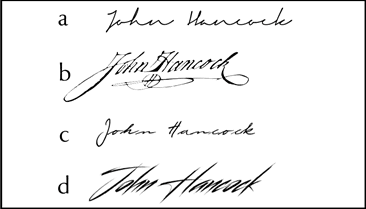 a John Hancock
b John Hancock
c John Hancock
d John Hancock